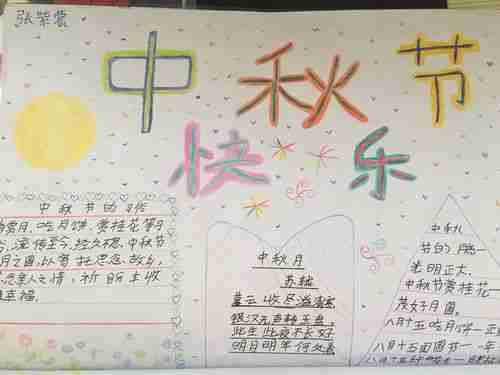 张荣棠
中秋节
快乐
中秋节的习俗
赏月、吃月饼、赏桂花等习
流传至今,经久不息。中秋节
月之圆,以寄托思念故乡,
念亲人之情,祈盼丰收
幸福。
中秋月
苏轼
暮云收尽溢清寒
银汉无声转玉盘
此生此夜不长好
明月明年何处看
中秋
节的
光明正大,
中秋节赏桂花一
茂好月圆。
八月十五吃月饼一正
八月十五团圆节一一年
八月十五